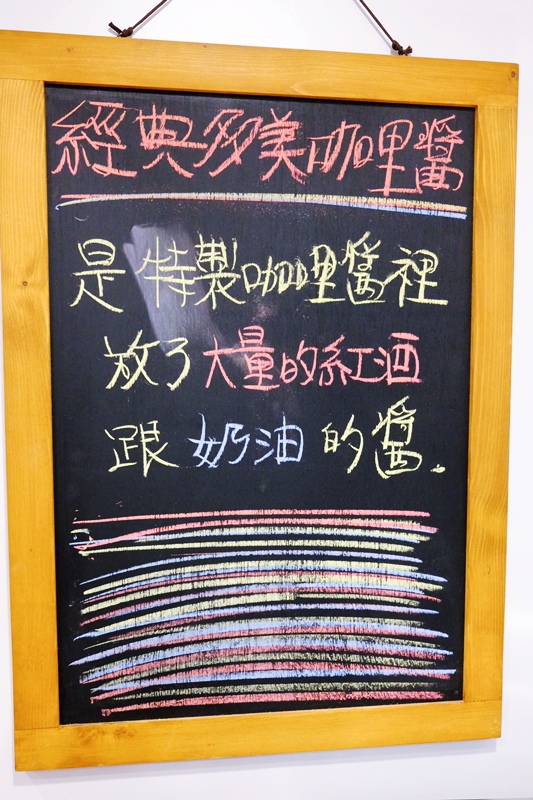 經典多美咖哩醬
是特製咖哩醬裡
放了大量的紅酒
跟奶油的醬.